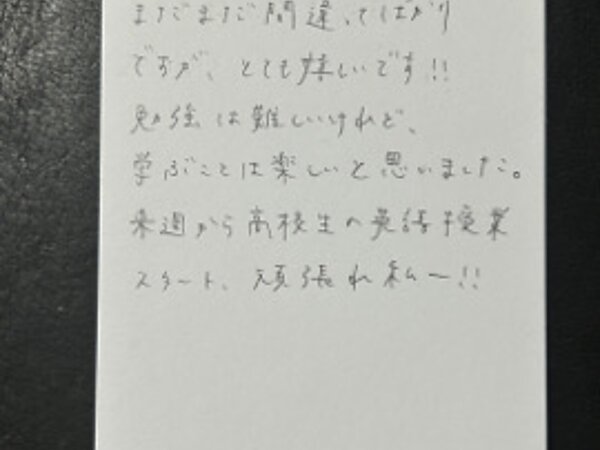 まだまだ間違ってばかり
ですが、とても嬉しいです!!
勉強は難しいけれど、
学ぶことは楽しいと思いました。
来週から高校生の英語授業
スタート、頑張れ私ー!!